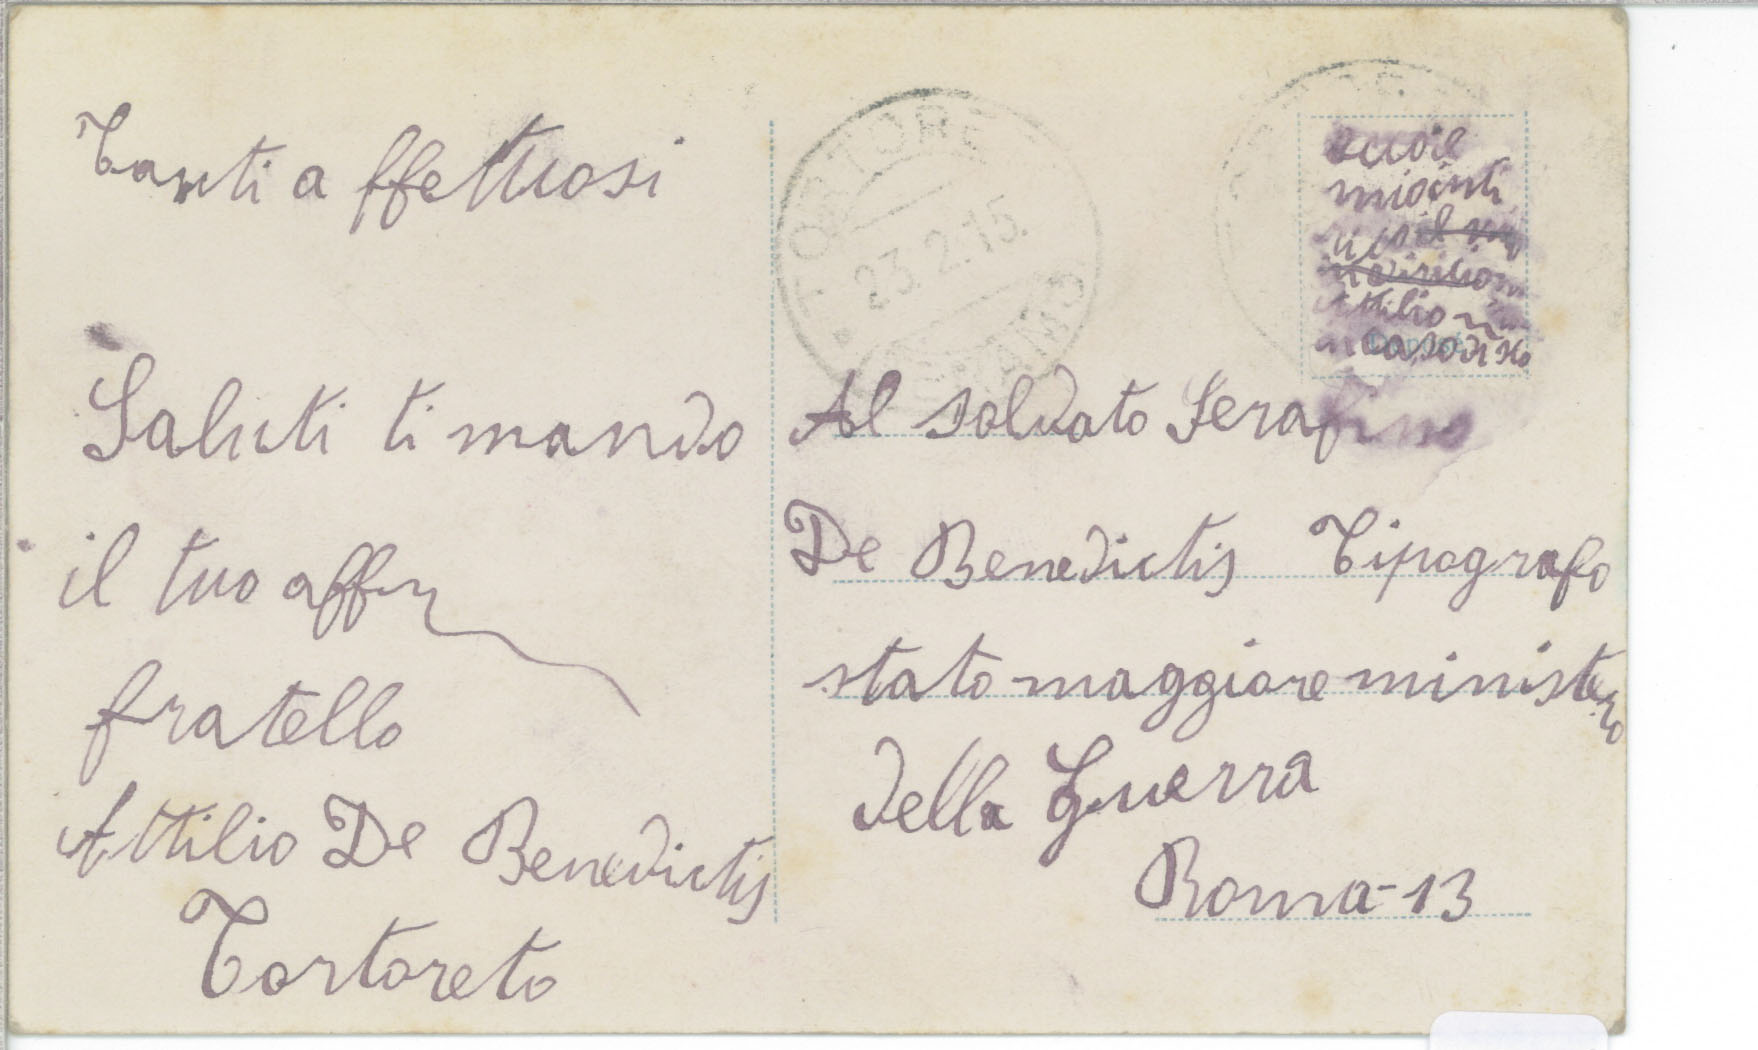 Tanti affettuosi
Saluti ti mando
il tuo aff
fratello
Attilio De Benedictis
Tortoreto
TORTORE
23.2.15.
TERAMO
Attilio
Al soldato Serafino
De Benedictis Tipografo
stato maggiore ministero
della Guerra
Roma-13